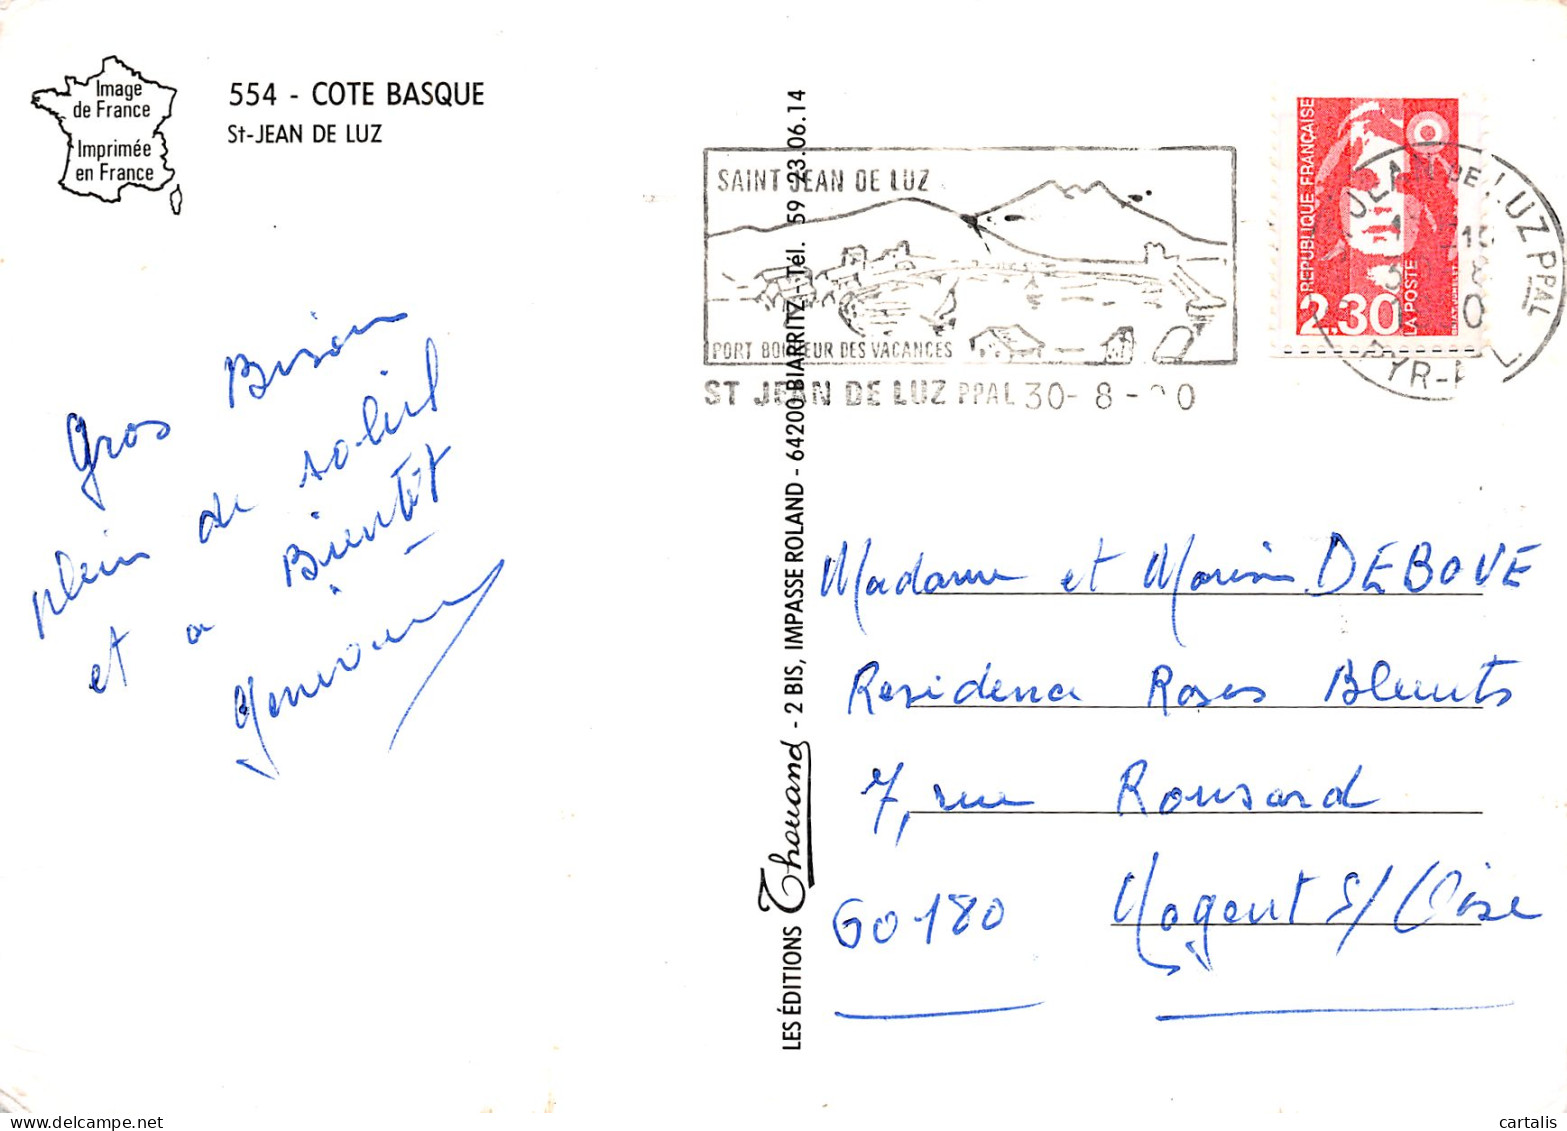 Image
de France
Imprimée
en France
554 - COTE BASQUE
St-JEAN DE LUZ
Gros Bisou
plein de soleil
et a Bientôt
LES ÉDITIONS Thouand - 2 BIS, IMPASSE ROLAND - 64200 BIARRITZ - Tél. 59 23.06.14
SAINT JEAN DE LUZ
PORT BONHEUR DES VACANCES
ST JEAN DE LUZ PPAL 30-8-90
RÉPUBLIQUE FRANÇAISE
2.30
LA POSTE
DE LUZ PPAL
Madame et DEBOVE
Residence Roses Bleuets
7, rue Ronsard
60180 Nogent S/ Oise
cartalis